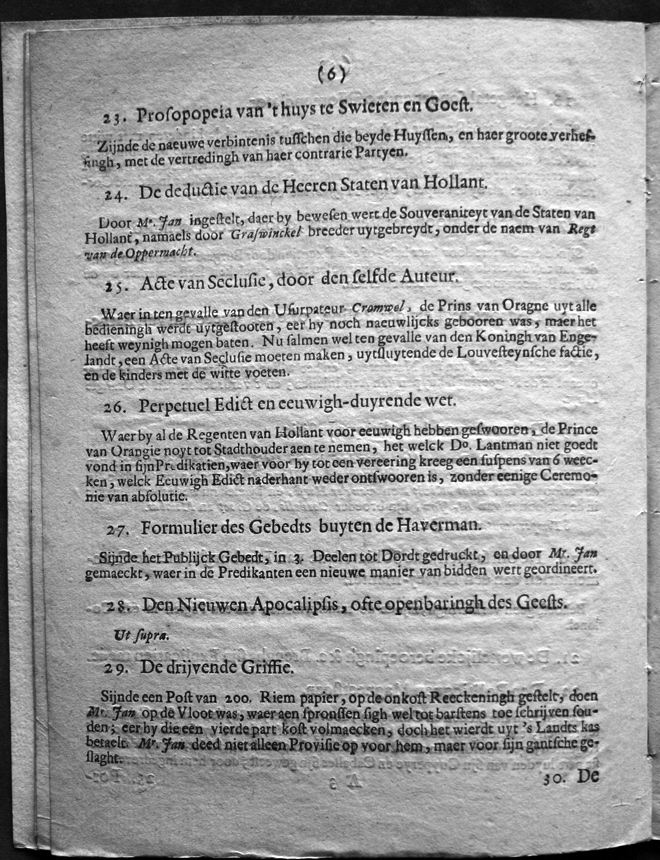 (6)
23. Prosopopeia van 't huys te Swieten en Goest.
Zijnde de naeuwe verbintenis tusschen die beyde Huyssen, en haer groote verhef-
fingh, met de vertredingh van haer contrarie Partyen.
24. De deductie van de Heeren Staten van Hollant.
Door Mr. Jan ingestelt, daer by bewesen wert de Souveraniteyt van de Staten van
Hollant, namaels door Graswinckel breeder uytgebreydt, onder de naem van Regt
van de Oppermacht.
25. Acte van Seclusie, door den selfde Auteur.
Waer in ten gevalle van den Usurpateur Cromwel, de Prins van Oragne uyt alle
bedieningh werdt uytgestooten, eer hy noch naeuwlijcks gebooren was, maer het
heeft weynigh mogen baten. Nu salmen wel ten gevalle van den Koningh van Enge-
landt, een Acte van Seclusie moeten maken, uytsluytende de Louvesteynsche factie,
en de kinders met de witte voeten.
26. Perpetuel Edict en eeuwigh-duyrende wet.
Waer by al de Regenten van Hollant voor eeuwigh hebben geswooren, de Prince
van Orangie noyt tot Stadthouder aen te nemen, het welck Do. Lantman niet goedt
vond in sijn Predikatien, waer voor hy tot een vereering kreeg een suspens van 6 weec-
ken, welck Eeuwigh Edict naderhant weder ontswooren is, zonder eenige Ceremo-
nie van absolutie.
27. Formulier des Gebedts buyten de Haverman.
Sijnde het Publijck Gebedt, in 3. Deelen tot Dordt gedruckt, en door Mr. Jan
gemaeckt, waer in de Predikanten een nieuwe manier van bidden wert geordineert.
28. Den Nieuwen Apocalipsis, ofte openbaringh des Geests.
Ut supra.
29. De drijvende Griffie.
Sijnde een Post van 200. Riem papier, op de onkost Reeckeningh gestelt, doen
Mr. Jan op de Vloot was, waer aen spronssen sigh wel tot barstens toe schrijven sou-
den; eer hy die een vierde part kost volmaecken, doch het wierdt uyt 's Landts kas
betaelt. Mr. Jan deed niet alleen Provisie op voor hem, maer voor sijn gantsche ge-
slaght.
30. De